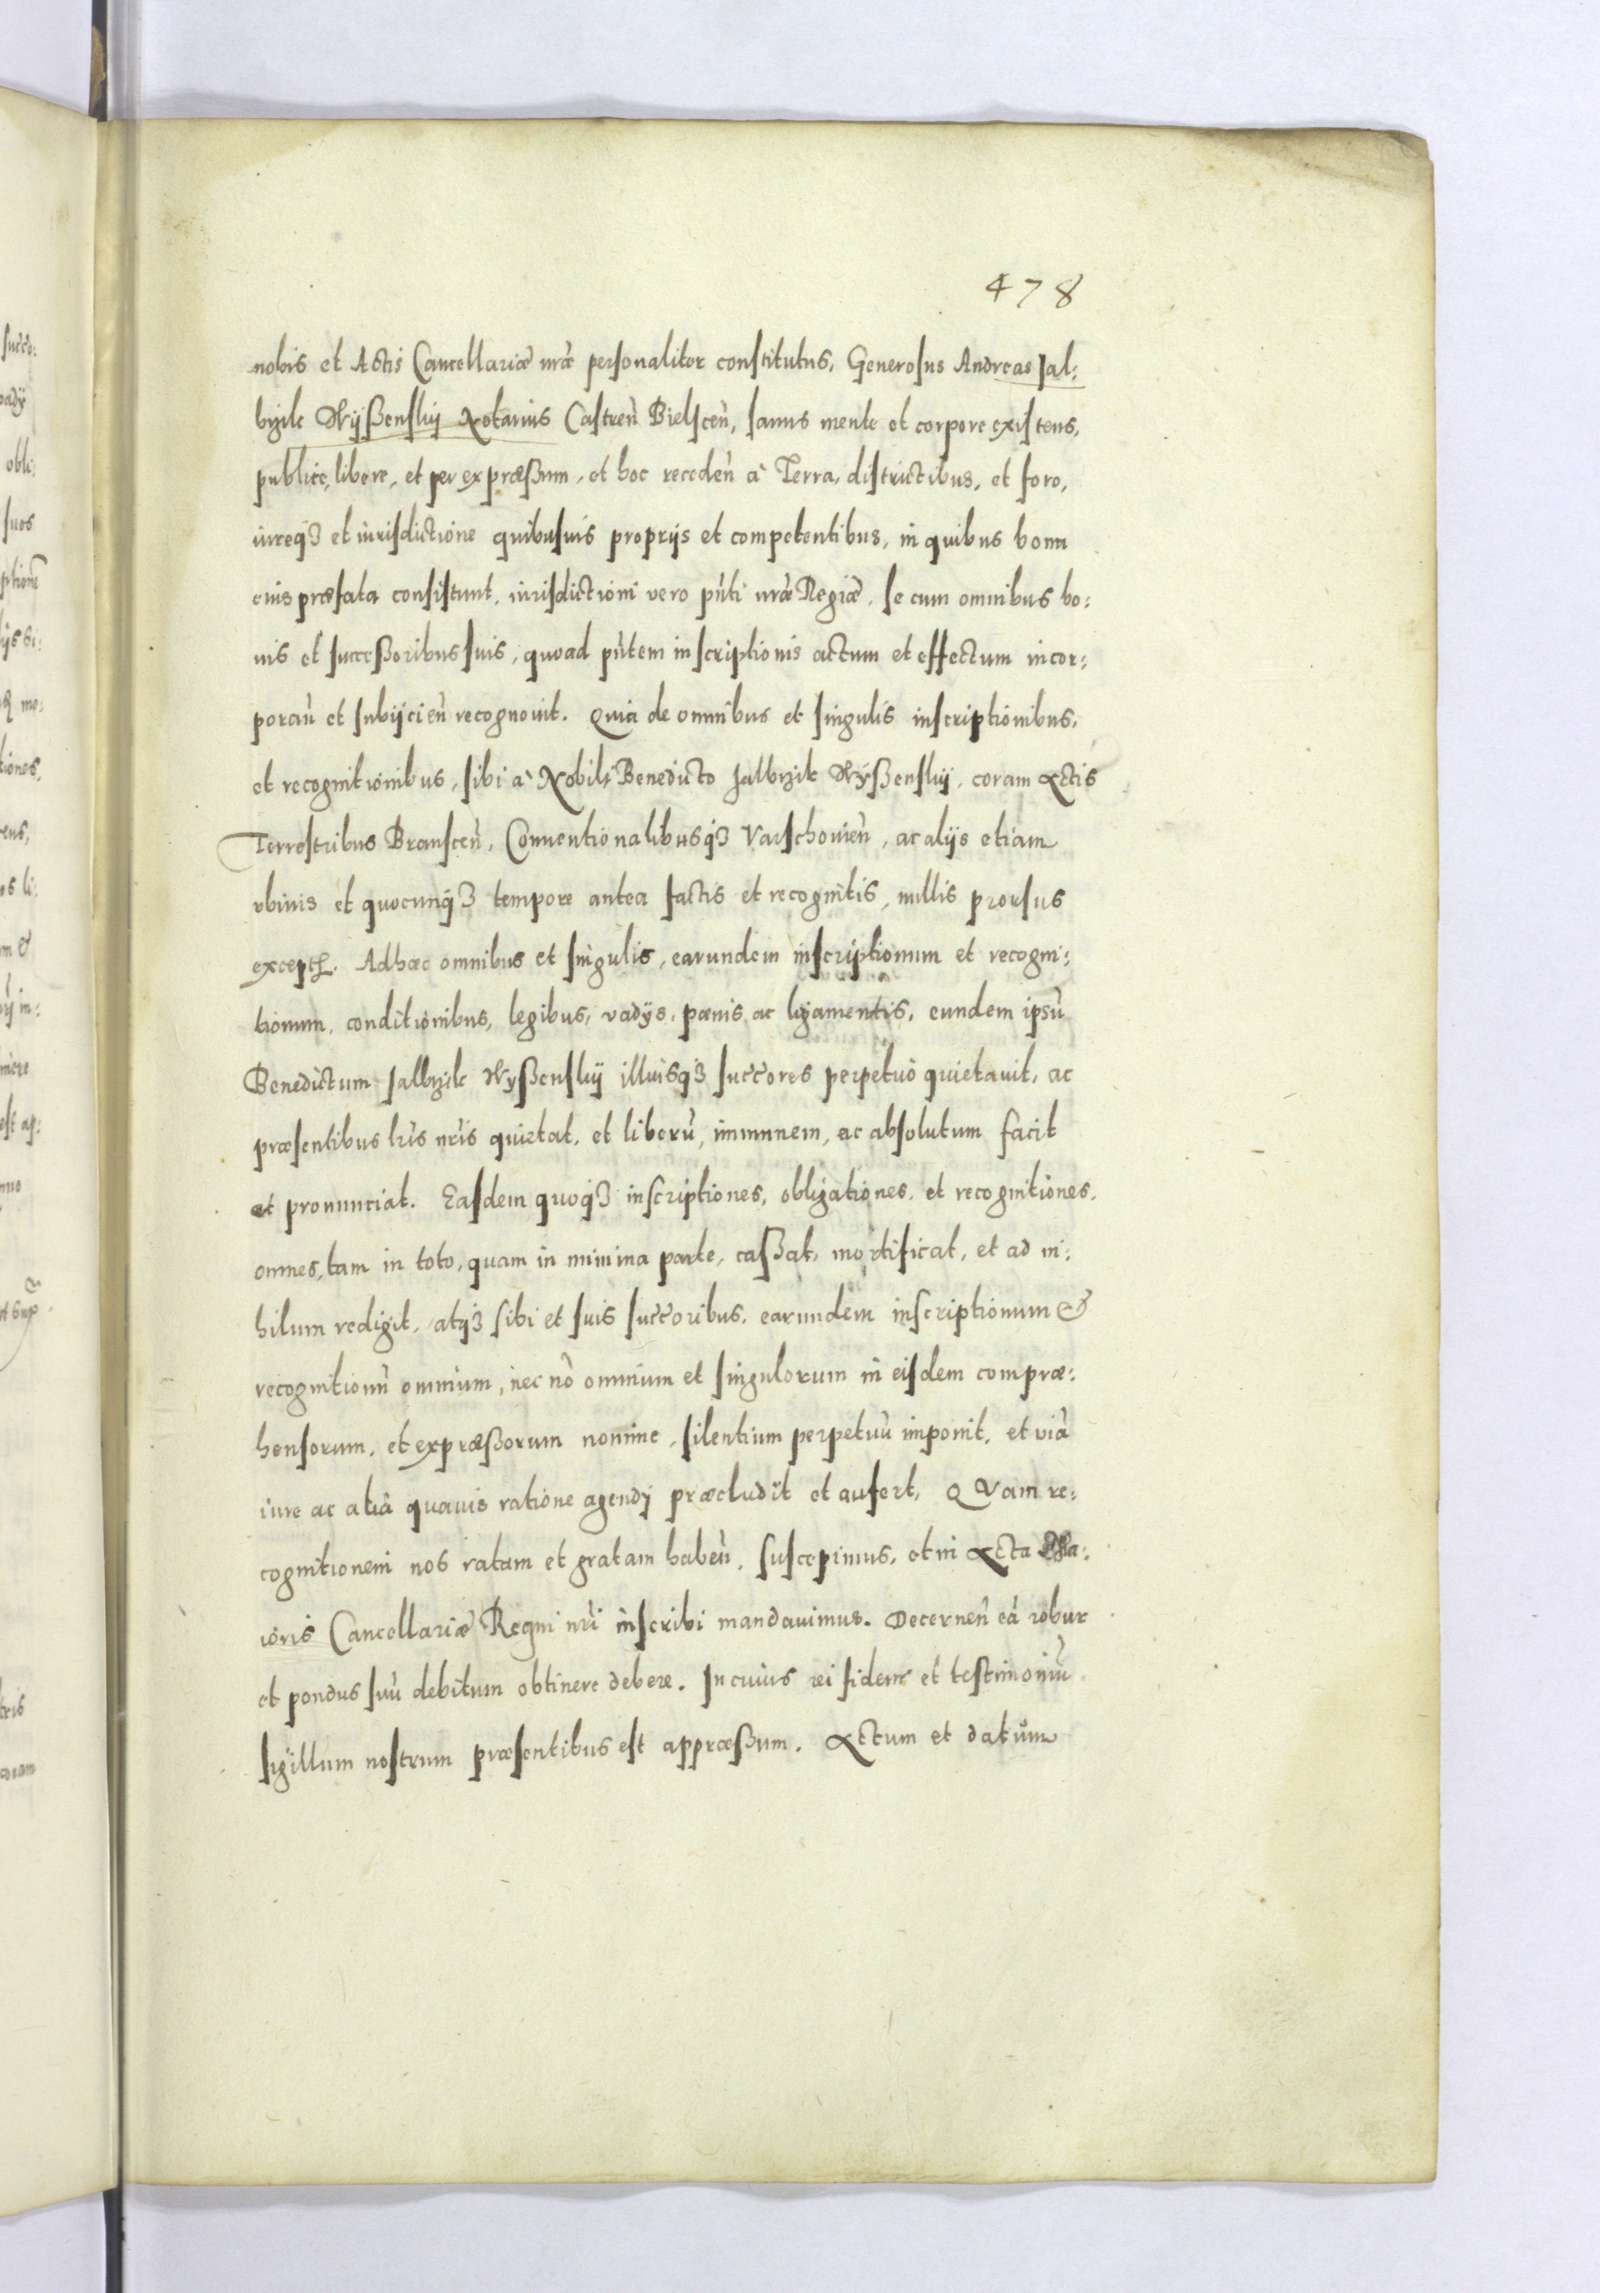 478
nobis et Actis Cancellariæ nr̃æ personaliter constitutus, Generosus Andreas Jal:
brzik Wyßenskij Notarius Castreñ Bielsceñ, sanus mente et corpore existens,
publice, libere, et per expræßum, et hoc recedeñ à Terra, districtibus, et foro,
iureqȝ et iurisdictione quibusuis proprijs et competentibus, in quibus bona
eius præfata consistunt, iurisdictioni vero pñti nr̃æ Regiæ, se cum omnibus bo:
nis et succeßoribus suis, quoad pñtem inscriptionis actum et effectum incor:
porañ et subijcieñ recognouit. Quia de omnibus et singulis inscriptionibus,
et recognitionibus, sibi à Nobili Benedicto Jalbrzik Wyßenskij, coram Actis
Terrestribus Bransceñ, Conuentionalibusqȝ Varschouieñ, ac alijs etiam
vbiuis et quocunqȝ tempore antea factis et recognitis, nullis prorsus
except̃. Adhæc omnibus et singulis, earundem inscriptionum et recogni:
tionum, conditionibus, legibus, vadijs, pænis ac ligamentis, eundem ipsũ
Benedictum Jalbrzik Wyßenskij illiusqȝ succ̃ores perpetuò quietauit, ac
præsentibus lr̃is nr̃is quietat, et liberũ, immunem, ac absolutum facit
et pronunciat. Easdem quoqȝ inscriptiones, obligationes, et recognitiones,
omnes, tam in toto, quam in minima parte, caßat, mortificat, et ad ni:
hilum redigit, atqȝ sibi et suis succ̃oribus, earundem inscriptionum &
recognitionũ omnium, nec nõ omnium et singulorum in eisdem compræ:
hensorum, et expræßorum nomine, silentium perpetuũ imponit, et viã
iure ac alia quauis ratione agendj præcludit et aufert, QVam re:
cognitionem nos ratam et gratam habeñ, suscepimus, et in Acta Ma:
ioris Cancellariæ Regni nr̃i inscribi mandauimus. Decerneñ eã robur
et pondus suũ debitum obtinere debere. In cuius rei fidem et testimoniũ
sigillum nostrum præsentibus est appræßum. Actum et datum